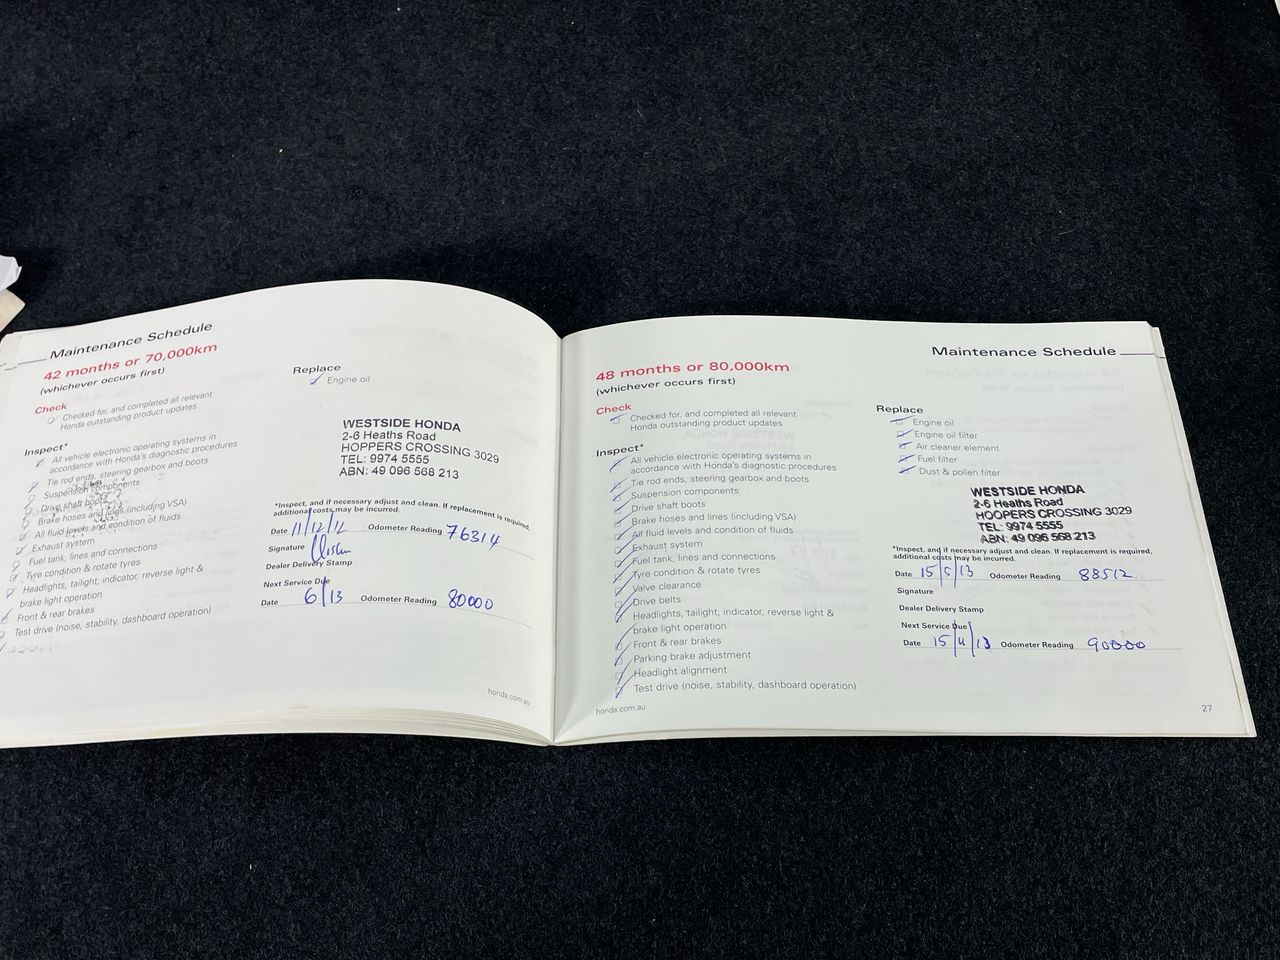 Maintenance Schedule
42 months or 70,000km
(whichever occurs first)
Check
Checked for, and completed all relevant
Honda outstanding product updates
Inspect*
All vehicle electronic operating systems in
accordance with Honda's diagnostic procedures
Tie rod ends, steering gearbox and boots
Suspension components
Drive shaft boots
Brake hoses and lines (including VSA)
All fluid levels and condition of fluids
Exhaust system
Fuel tank, lines and connections
Tyre condition & rotate tyres
Headlights, tailight, indicator, reverse light &
brake light operation
Front & rear brakes
Test drive (noise, stability, dashboard operation)
Replace
Engine oil
WESTSIDE HONDA
2-6 Heaths Road
HOPPERS CROSSING 3029
TEL: 9974 5555
ABN: 49 096 568 213
*Inspect, and if necessary adjust and clean. If replacement is required,
additional costs may be incurred.
Date 11/12/12 Odometer Reading 76314
Signature
Dealer Delivery Stamp
Next Service Due
Date 6/13 Odometer Reading 80000
honda.com.au
Maintenance Schedule
48 months or 80,000km
(whichever occurs first)
Check
Checked for, and completed all relevant
Honda outstanding product updates
Inspect*
All vehicle electronic operating systems in
accordance with Honda's diagnostic procedures
Tie rod ends, steering gearbox and boots
Suspension components
Drive shaft boots
Brake hoses and lines (including VSA)
All fluid levels and condition of fluids
Exhaust system
Fuel tank, lines and connections
Tyre condition & rotate tyres
Valve clearance
Drive belts
Headlights, tailight, indicator, reverse light &
brake light operation
Front & rear brakes
Parking brake adjustment
Headlight alignment
Test drive (noise, stability, dashboard operation)
honda.com.au
Replace
Engine oil
Engine oil filter
Air cleaner element
Fuel filter
Dust & pollen filter
WESTSIDE HONDA
2-6 Heaths Road
HOOPERS CROSSING 3029
TEL: 9974 5555
ABN: 49 096 568 213
*Inspect, and if necessary adjust and clean. If replacement is required,
additional costs may be incurred.
Date 15/5/13 Odometer Reading 88512
Signature
Dealer Delivery Stamp
Next Service Due
Date 15/11/13 Odometer Reading 90000
27